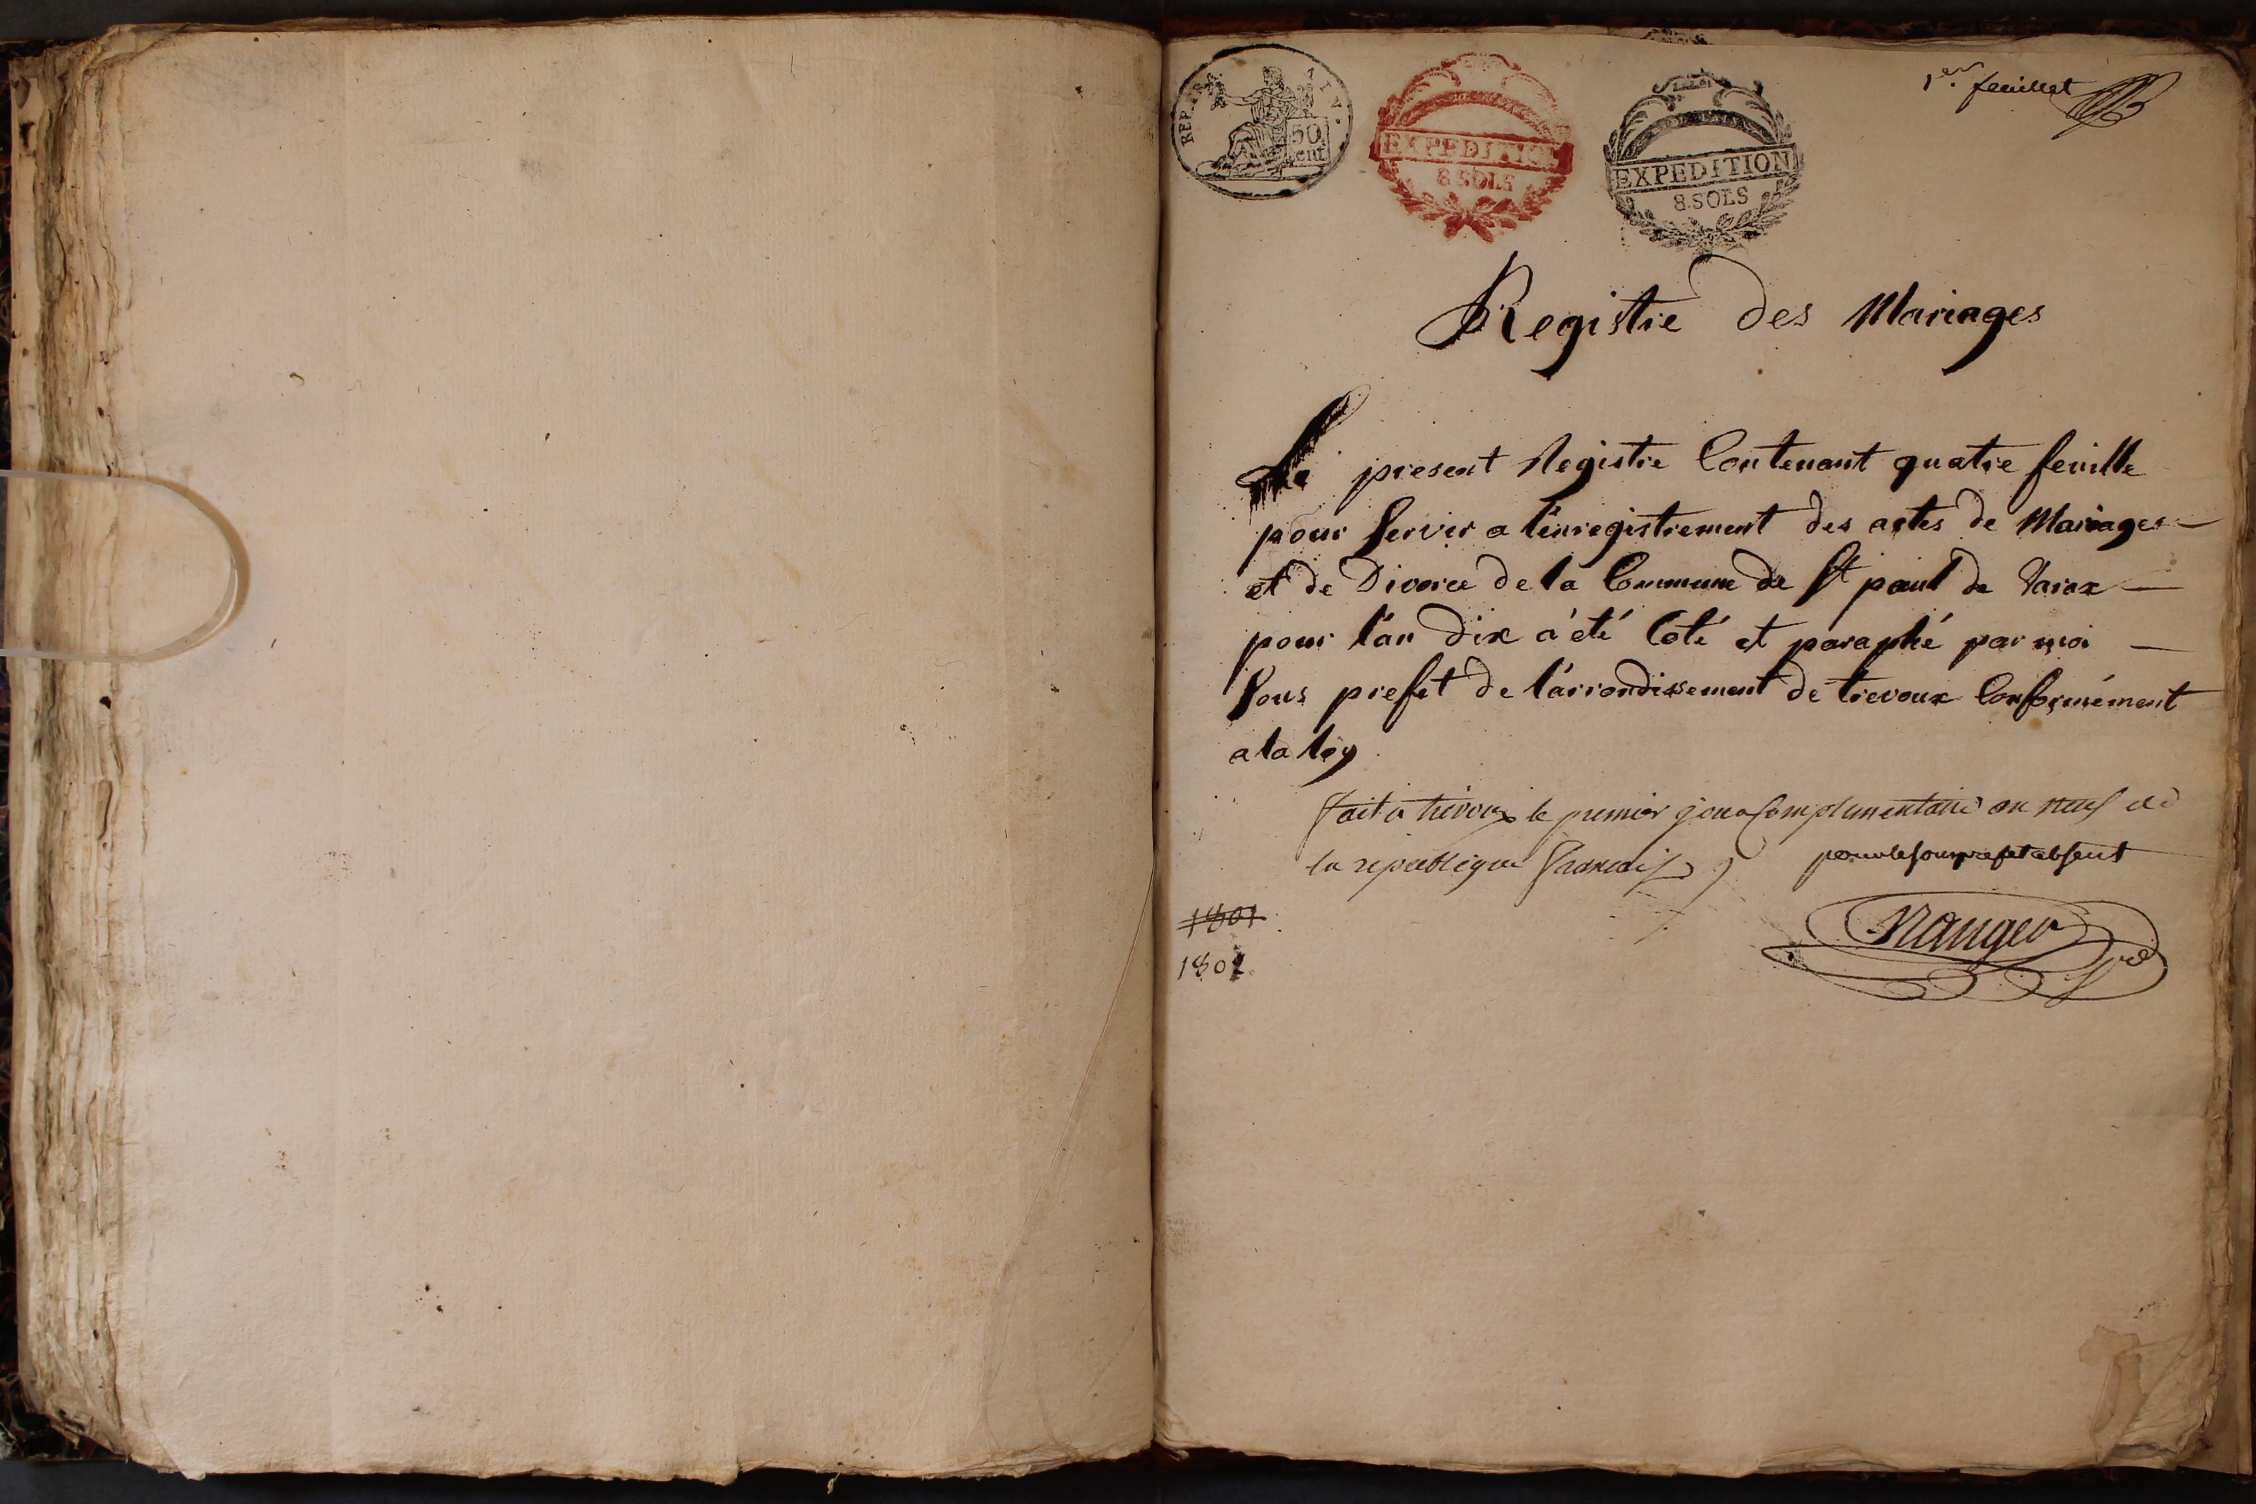 REP. FRA
50
cent
EXPEDITION
8 SOLS
EXPEDITION
8.SOLS
1er. feuillet
Registre des Mariages
Le present Registre Contenant quatre feuille
pour Servir a l'enregistrement des actes de Mariages
et de Divorce de la Commune de St paul de Varax
pour l'an dix a été Coté et paraphé par moi
Sous prefet de l'arrondissement de trevoux Conformément
a la loy
fait a trevoux le premier jour Complementaire an neuf de
la republique francaise
pour le sous prefet absent
1801
1802.